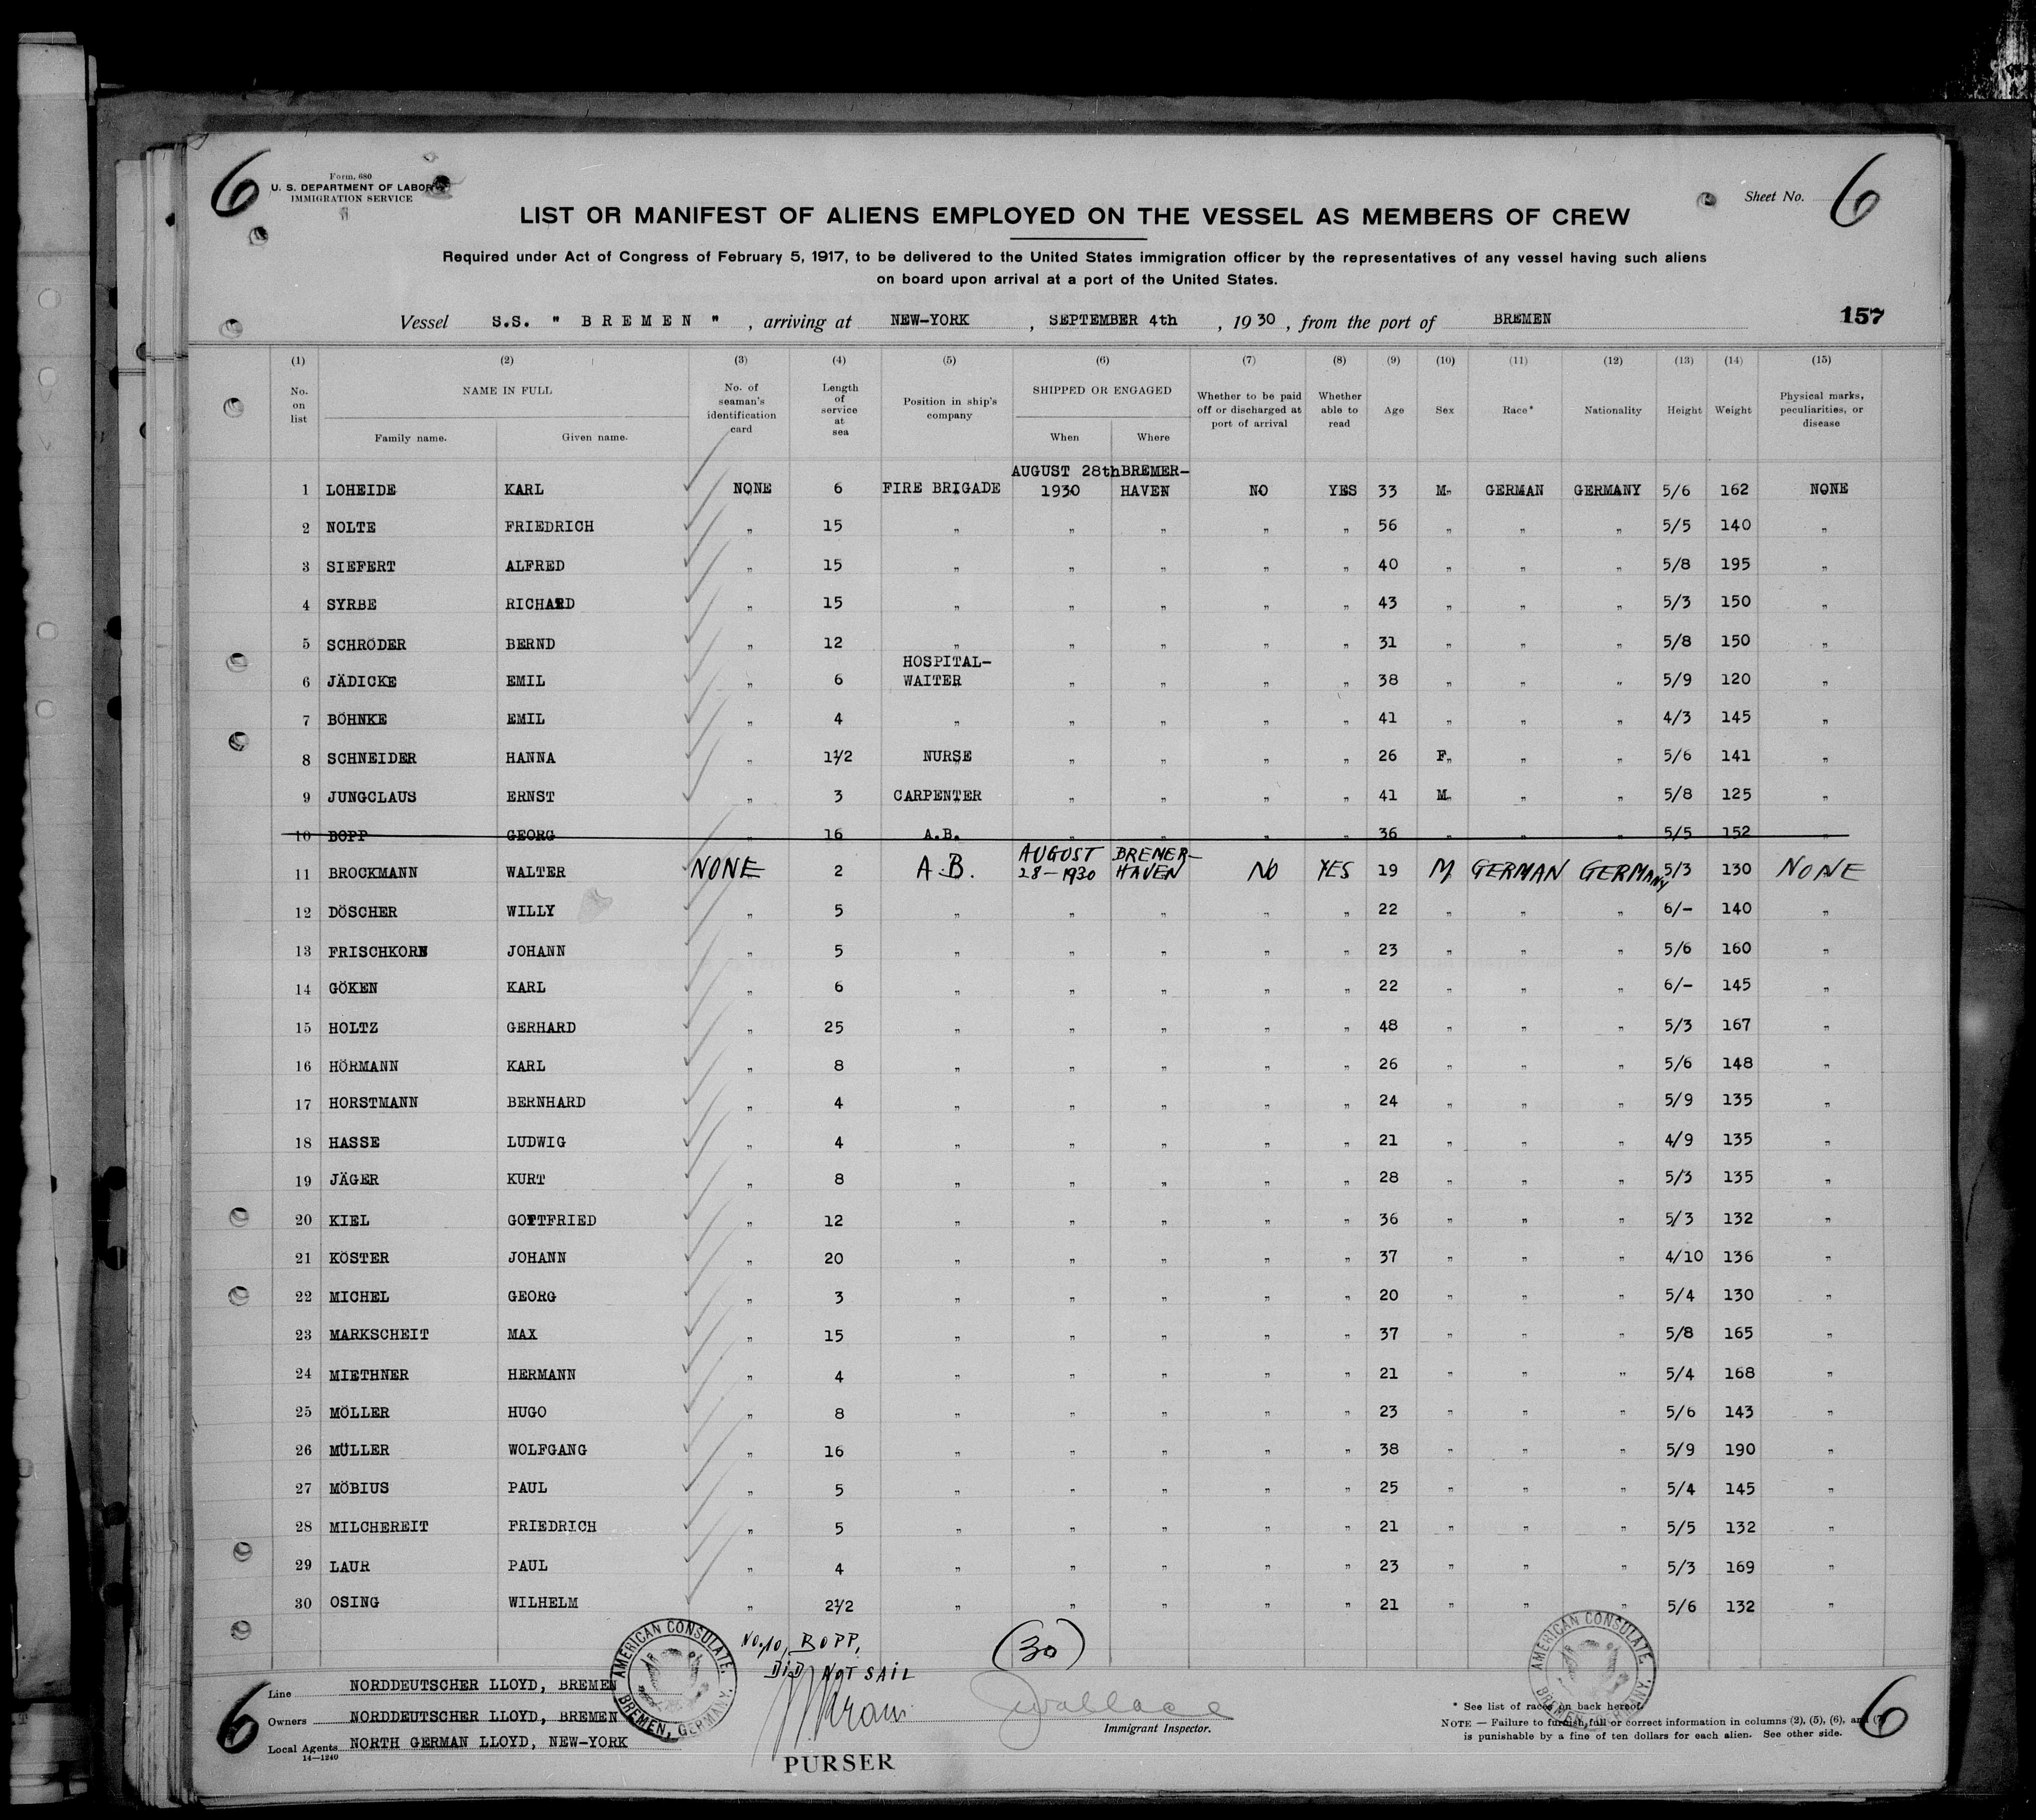 6
Form. 680
U. S. DEPARTMENT OF LABOR
IMMIGRATION SERVICE
Sheet No. 6
LIST OR MANIFEST OF ALIENS EMPLOYED ON THE VESSEL AS MEMBERS OF CREW
Required under Act of Congress of February 5, 1917, to be delivered to the United States immigration officer by the representatives of any vessel having such aliens
on board upon arrival at a port of the United States.
Vessel S.S. " BREMEN " , arriving at NEW-YORK , SEPTEMBER 4th , 1930 , from the port of BREMEN
157
(1) (2) (3) (4) (5) (6) (7) (8) (9) (10) (11) (12) (13) (14) (15)
No. on list NAME IN FULL Family name. Given name. No. of seaman's identification card Length of service at sea Position in ship's company SHIPPED OR ENGAGED When Where Whether to be paid off or discharged at port of arrival Whether able to read Age Sex Race* Nationality Height Weight Physical marks, peculiarities, or disease
1 LOHEIDE KARL NONE 6 FIRE BRIGADE AUGUST 28th 1930 BREMER-HAVEN NO YES 33 M. GERMAN GERMANY 5/6 162 NONE
2 NOLTE FRIEDRICH " 15 " " " " " 56 " " " 5/5 140 "
3 SIEFERT ALFRED " 15 " " " " " 40 " " " 5/8 195 "
4 SYRBE RICHARD " 15 " " " " " 43 " " " 5/3 150 "
5 SCHRÖDER BERND " 12 " " " " " 31 " " " 5/8 150 "
6 JÄDICKE EMIL " 6 HOSPITAL-WAITER " " " " 38 " " " 5/9 120 "
7 BÖHNKE EMIL " 4 " " " " " 41 " " " 4/3 145 "
8 SCHNEIDER HANNA " 1½ NURSE " " " " 26 F. " " 5/6 141 "
9 JUNGCLAUS ERNST " 3 CARPENTER " " " " 41 M. " " 5/8 125 "
10 BOPP GEORG " 16 A.B. " " " " 36 " " " 5/5 152 "
11 BROCKMANN WALTER NONE 2 A.B. AUGUST 28-1930 BREMER-HAVEN NO YES 19 M GERMAN GERMANY 5/3 130 NONE
12 DÖSCHER WILLY " 5 " " " " " 22 " " " 6/- 140 "
13 FRISCHKORN JOHANN " 5 " " " " " 23 " " " 5/6 160 "
14 GÖKEN KARL " 6 " " " " " 22 " " " 6/- 145 "
15 HOLTZ GERHARD " 25 " " " " " 48 " " " 5/3 167 "
16 HÖRMANN KARL " 8 " " " " " 26 " " " 5/6 148 "
17 HORSTMANN BERNHARD " 4 " " " " " 24 " " " 5/9 135 "
18 HASSE LUDWIG " 4 " " " " " 21 " " " 4/9 135 "
19 JÄGER KURT " 8 " " " " " 28 " " " 5/3 135 "
20 KIEL GOTTFRIED " 12 " " " " " 36 " " " 5/3 132 "
21 KÖSTER JOHANN " 20 " " " " " 37 " " " 4/10 136 "
22 MICHEL GEORG " 3 " " " " " 20 " " " 5/4 130 "
23 MARKSCHEIT MAX " 15 " " " " " 37 " " " 5/8 165 "
24 MIETHNER HERMANN " 4 " " " " " 21 " " " 5/4 168 "
25 MÖLLER HUGO " 8 " " " " " 23 " " " 5/6 143 "
26 MÜLLER WOLFGANG " 16 " " " " " 38 " " " 5/9 190 "
27 MÖBIUS PAUL " 5 " " " " " 25 " " " 5/4 145 "
28 MILCHEREIT FRIEDRICH " 5 " " " " " 21 " " " 5/5 132 "
29 LAUR PAUL " 4 " " " " " 23 " " " 5/3 169 "
30 OSING WILHELM " 2½ " " " " " 21 " " " 5/6 132 "
NO.10, BOPP,
DID NOT SAIL
(30)
AMERICAN CONSULATE. BREMEN, GERMANY.
AMERICAN CONSULATE. BREMEN, GERMANY.
6
Line NORDDEUTSCHER LLOYD, BREMEN
Owners NORDDEUTSCHER LLOYD, BREMEN
Local Agents NORTH GERMAN LLOYD, NEW-YORK
14—1240
PURSER
Wallace
Immigrant Inspector.
* See list of races on back hereof.
NOTE — Failure to furnish full or correct information in columns (2), (5), (6), and (7)
is punishable by a fine of ten dollars for each alien. See other side.
6